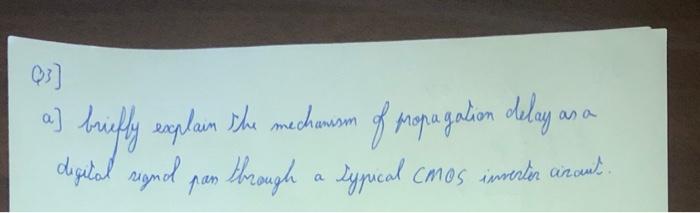 Q3]
a] briefly explain the mechanism of propagation delay as a
digital signal pass through a typical CMOS inverter circuit.